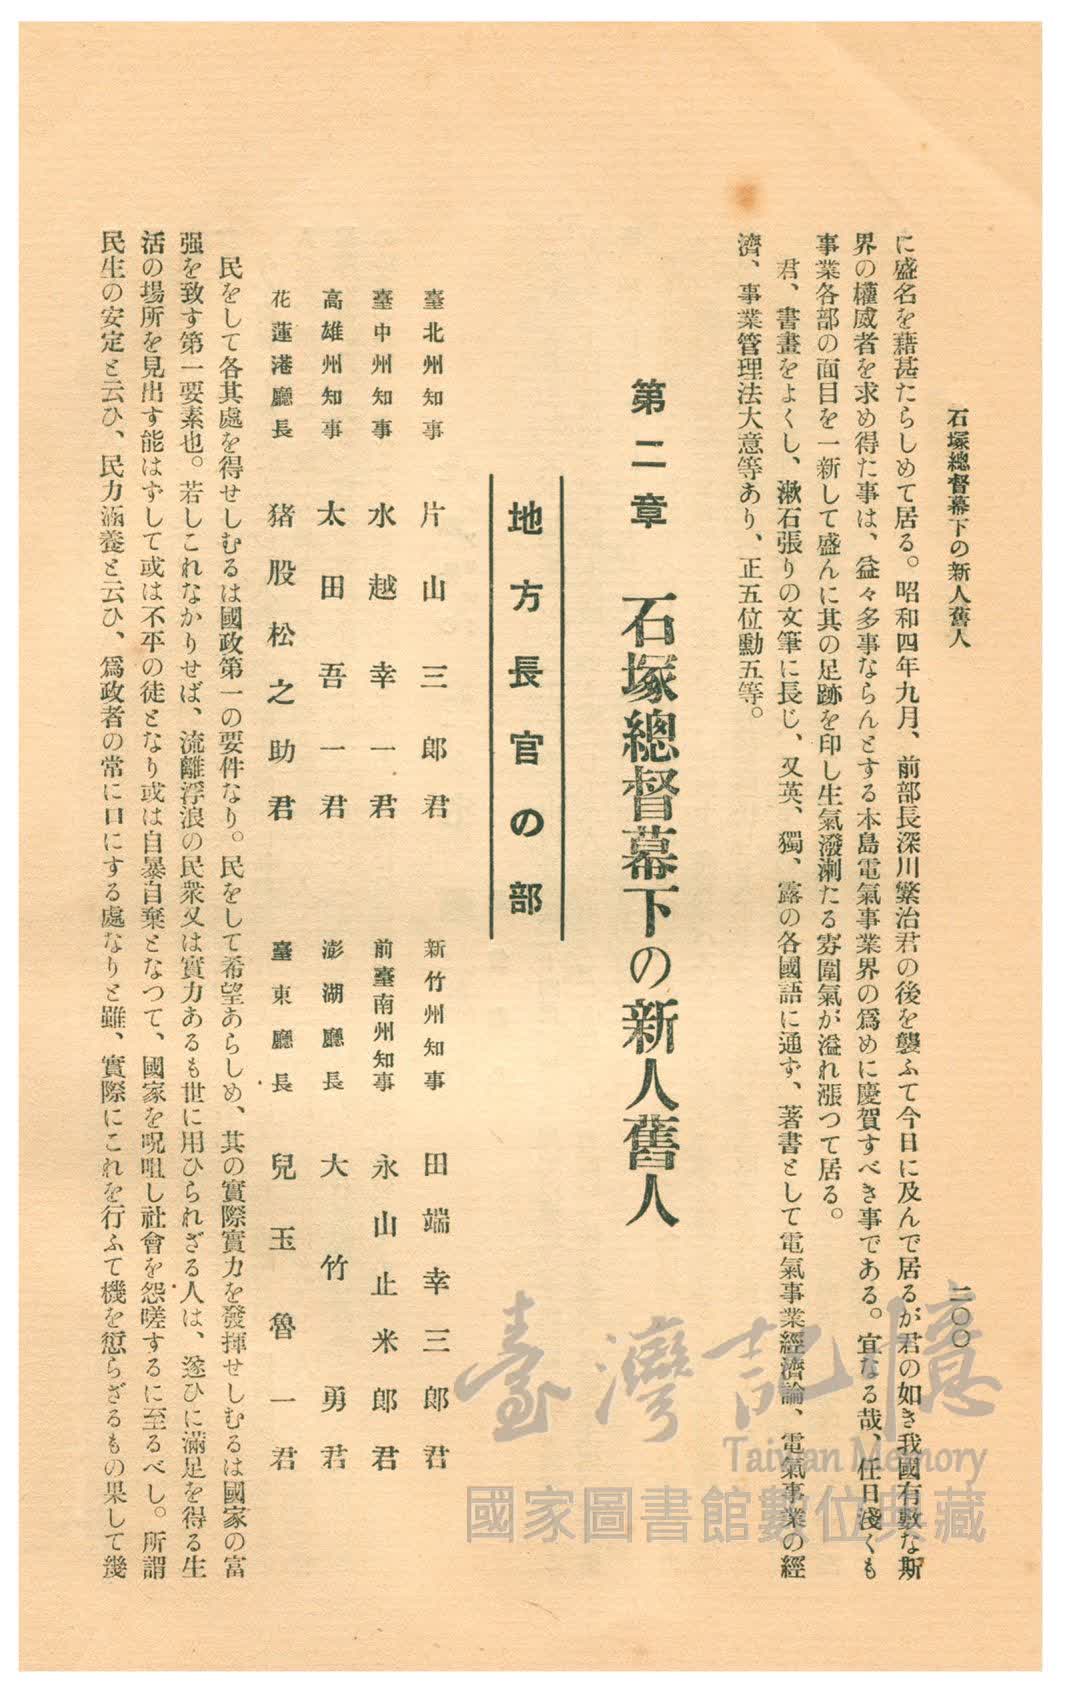 石塚總督幕下の新人舊人
二〇〇
に盛名を藉甚たらしめて居る。昭和四年九月、前部長深川繁治君の後を襲ふて今日に及んで居るが君の如き我國有數な斯
界の權威者を求め得た事は、益々多事ならんとする本島電氣事業界の爲めに慶賀すべき事である。宜なる哉、任日淺くも
事業各部の面目を一新して盛んに其の足跡を印し生氣潑溂たる雰圍氣が溢れ漲つて居る。
君、書畫をよくし、漱石張りの文筆に長じ、又英、獨、露の各國語に通ず、著書として電氣事業經濟論、電氣事業の經
濟、事業管理法大意等あり、正五位勳五等。
第二章 石塚總督幕下の新人舊人
地方長官の部
臺北州知事 片山三郎君
新竹州知事 田端幸三郎君
臺中州知事 水越幸一君
前臺南州知事 永山止米郎君
高雄州知事 太田吾一君
澎湖廳長 大竹勇君
花蓮港廳長 猪股松之助君
臺東廳長 兒玉魯一君
民をして各其處を得せしむるは國政第一の要件なり。民をして希望あらしめ、其の實際實力を發揮せしむるは國家の富
强を致す第一要素也。若しこれなかりせば、流離浮浪の民衆又は實力あるも世に用ひられざる人は、遂ひに滿足を得る生
活の場所を見出す能はずして或は不平の徒となり或は自暴自棄となつて、國家を呪咀し社會を怨嗟するに至るべし。所謂
民生の安定と云ひ、民力涵養と云ひ、爲政者の常に口にする處なりと雖、實際にこれを行ふて機を愆らざるもの果して幾
臺灣記憶
Taiwan Memory
國家圖書館數位典藏